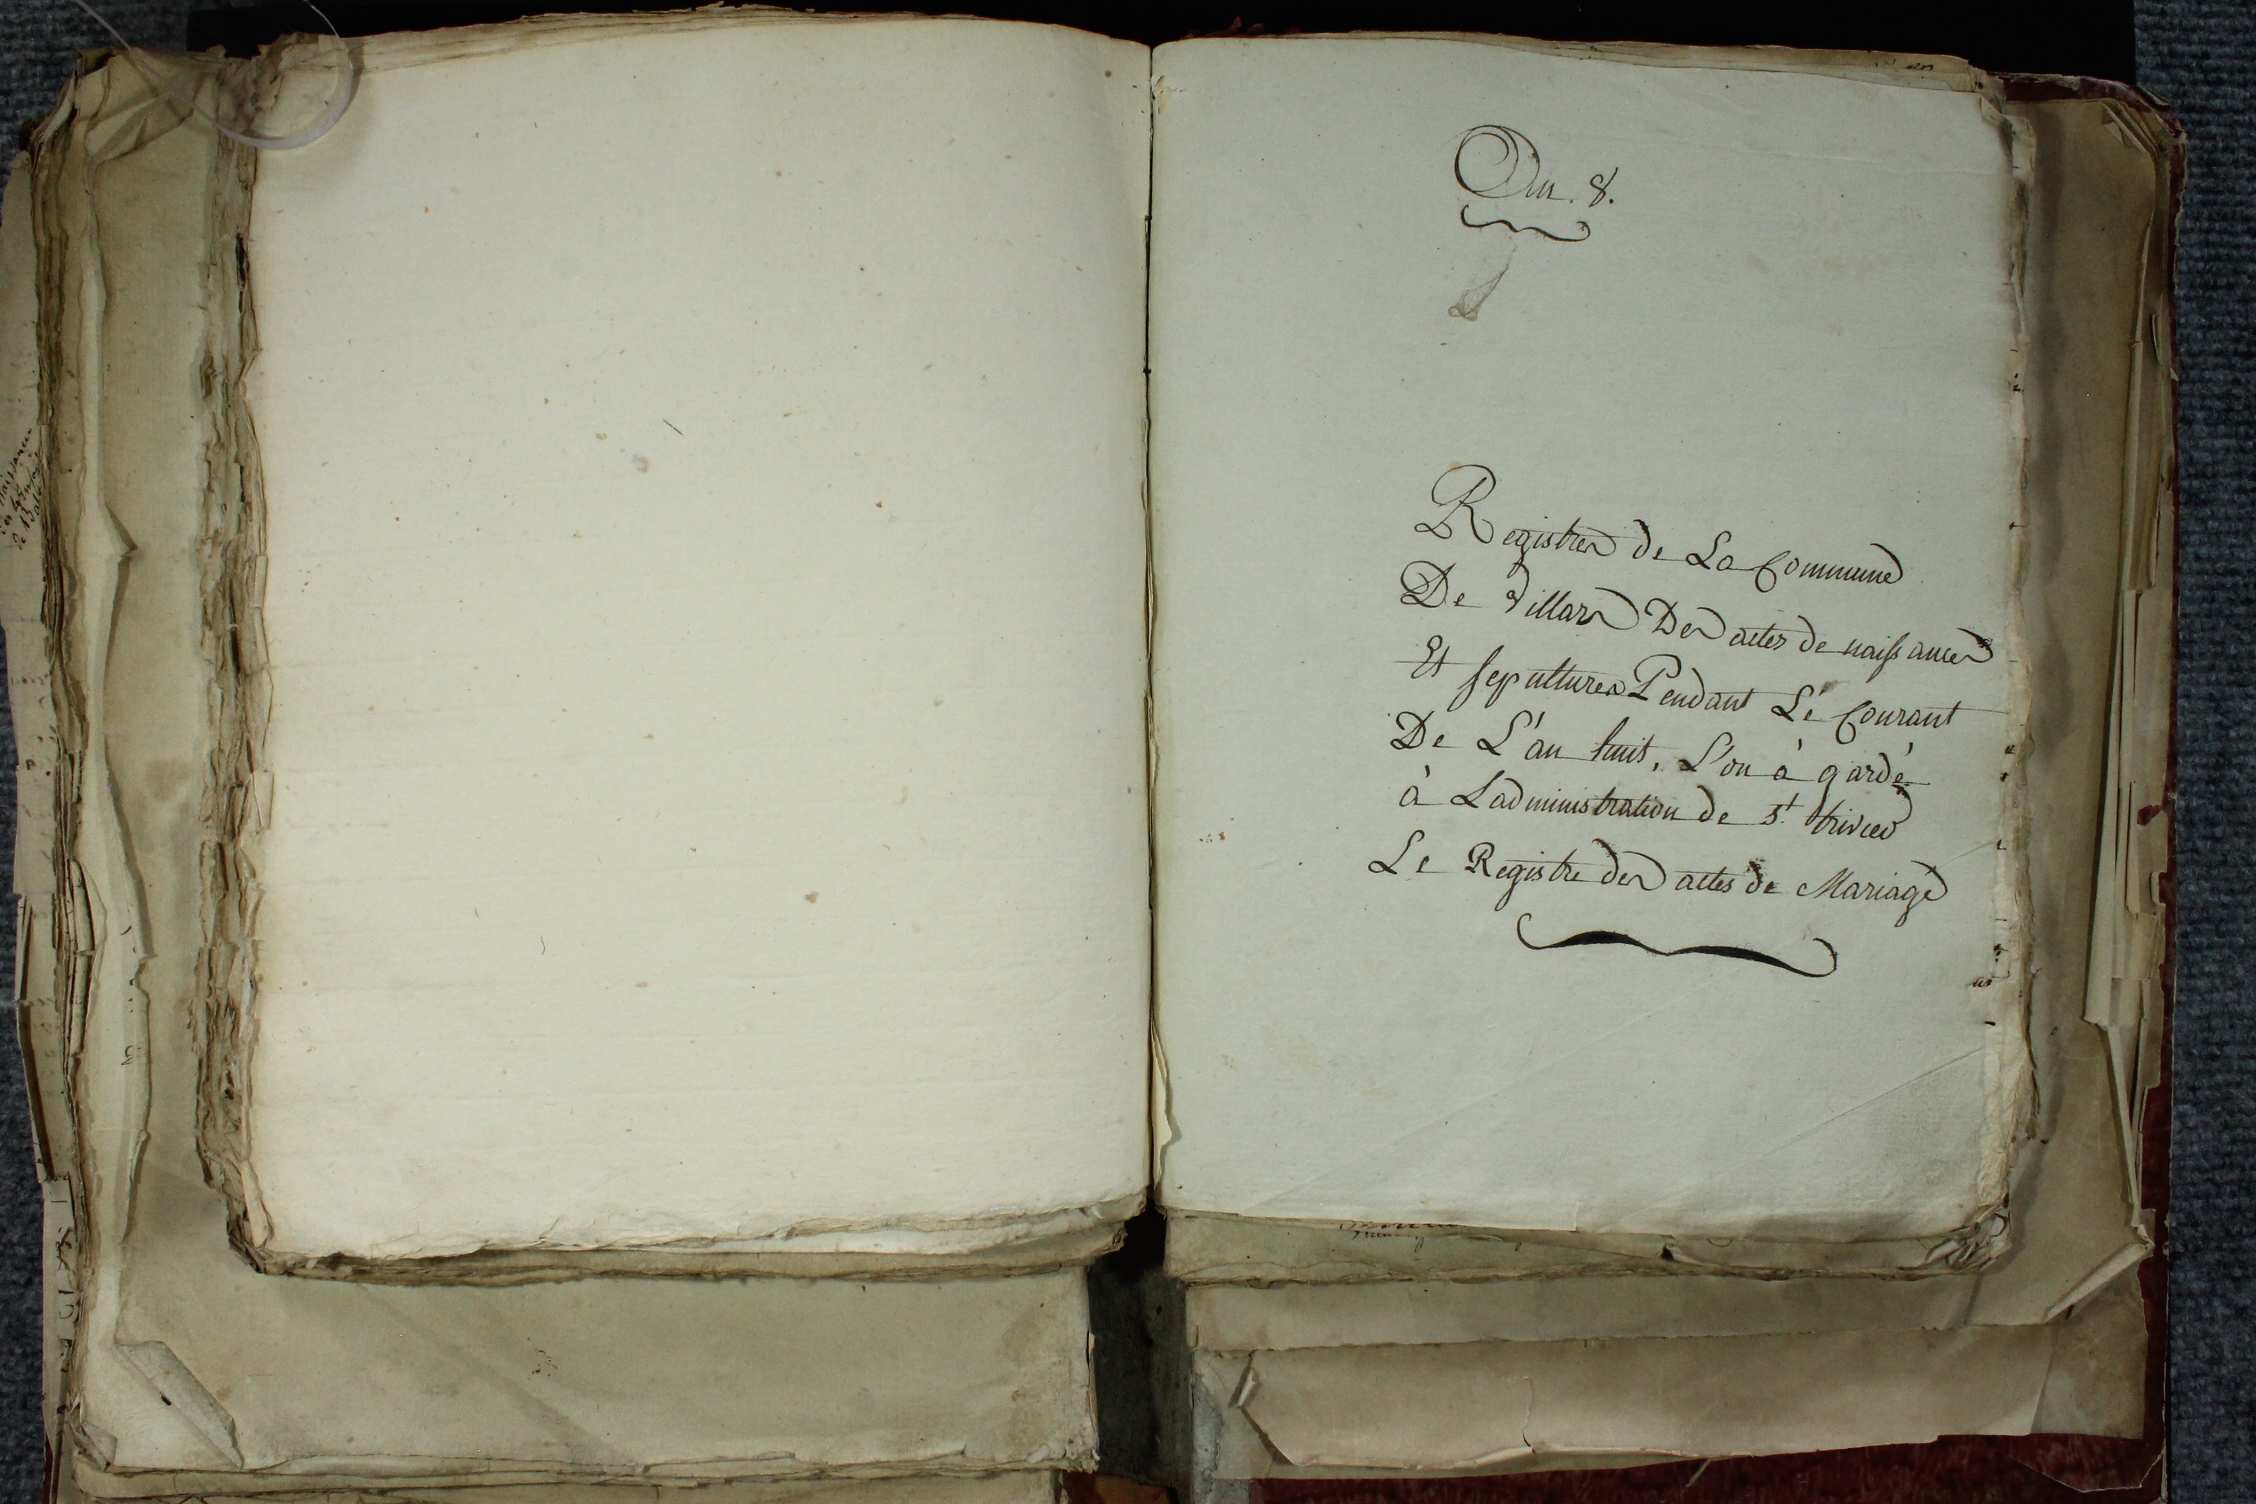 An. 8.
Registres de La Commune
De Villars Des actes de naissances
Et sepultures Pendant Le Courant
De L'an huit, L'on à gardé
à Ladministration de St. trivier
Le Registre des actes de Mariage